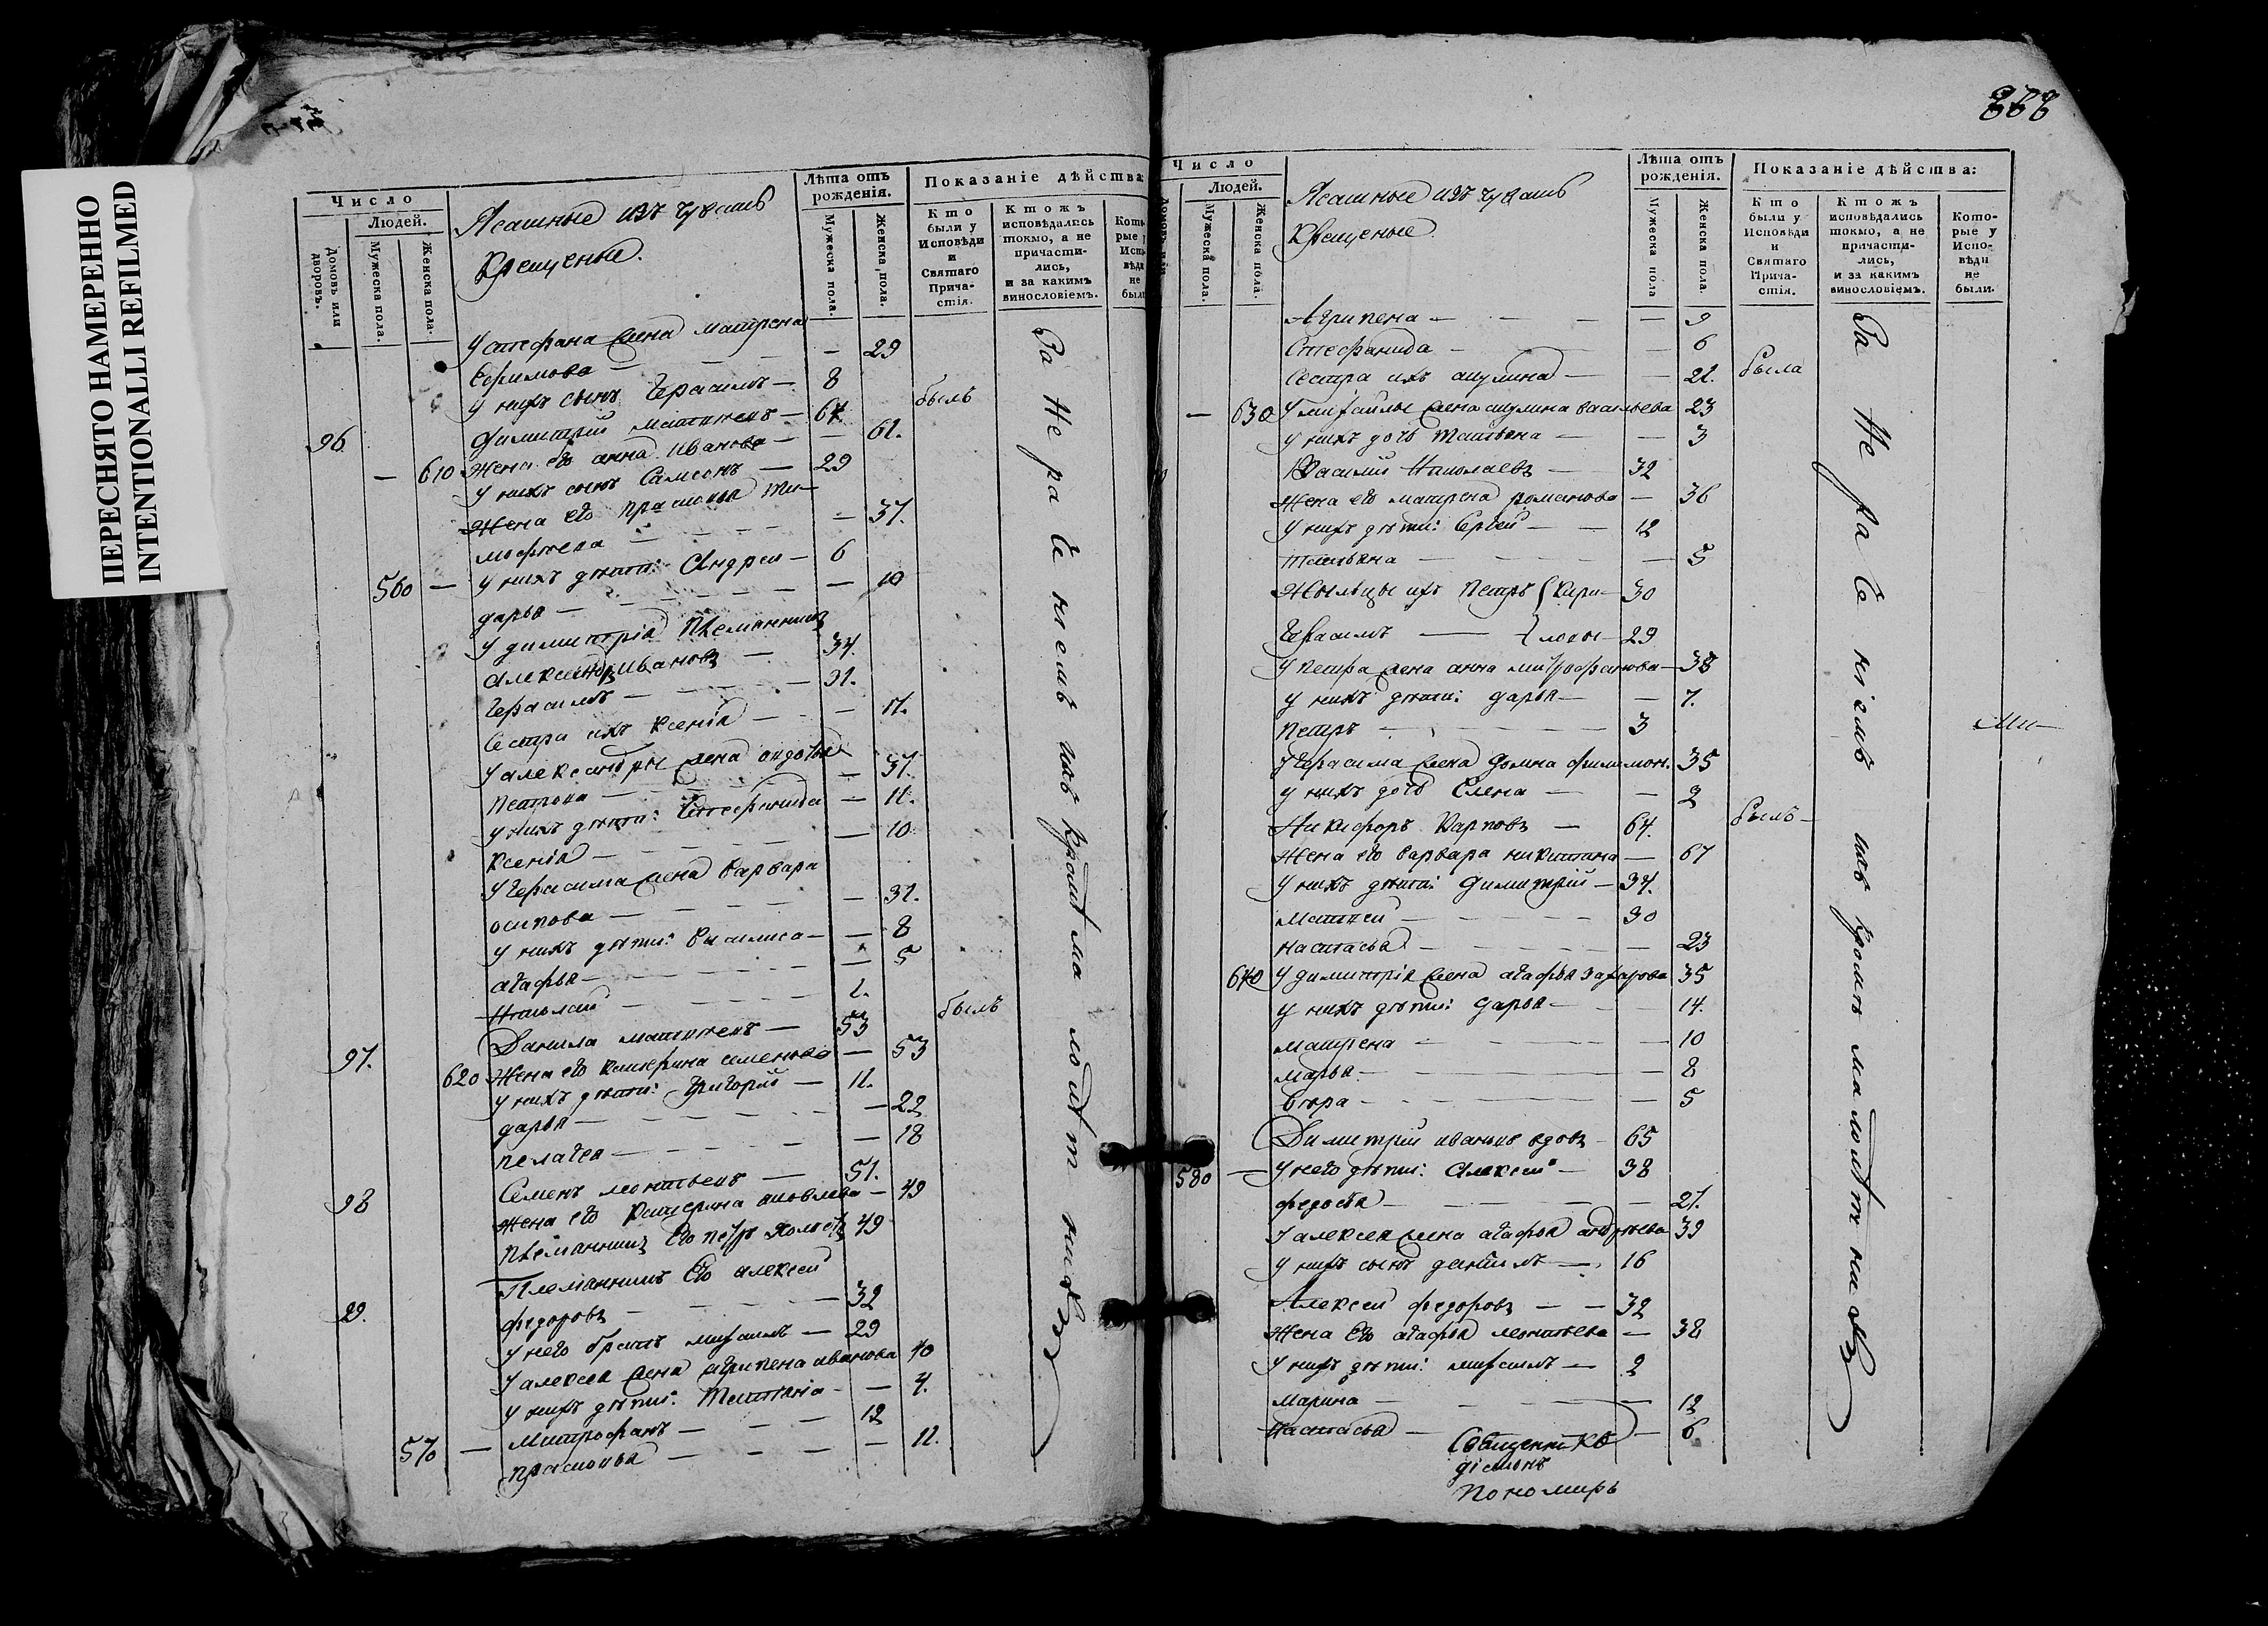 ПЕРЕСНЯТО НАМЕРЕННО
INTENTIONALLI REFILMED
Число
Людей.
Домовъ или дворовъ.
Мужеска пола.
Женска пола.
Ясашные изъ чувашъ
Крещеные.
Лѣта отъ рожденія.
Мужеска пола.
Женска пола.
Показаніе дѣйства
Кто были у Исповѣди и Святаго Прича-стія.
Ктожъ исповѣдались токмо, а не причасти-лись, и за какимъ винословіемъ.
У стефана жена матрена
Ефимова — 29
У нихъ сынъ Герасимъ — 8
96 Димитрий матвѣевъ — 64 былъ
— 610 Жена его анна Иванова — 61.
У нихъ сынъ Самсонъ — 29
Жена его прасковья ти-
мофѣева — 37.
560 — У нихъ дѣти: Андреи — 6
дарья — 10
У димитрія племянники
Александръ Ивановъ — 34.
Герасимъ — 31.
Сестра ихъ Ксенія — 17.
У александры жена андотья
петрова — 37.
У нихъ дѣти: Стефанида — 11.
Ксенія — 10
У герасима жена варвара
осипова — 31.
У нихъ дѣти: Василиса — 8
агафья — 5
Николай — 1.
97. Данила матвѣевъ — 53 былъ
620 Жена его катерина семенова — 53
У нихъ дѣти: Григорий — 11.
дарья — 22
пелагея — 18
98 Семенъ леонтьевъ — 51.
Жена его катерина яковлева — 49
племянникъ Его петръ 49
99. Племянникъ Его алексей
федоровъ — 32
У него братъ михаилъ — 29
У алексея жена агрипена иванова 40
У нихъ дѣти: — 4.
Митрофанъ — 12
570 — прасковья — 11.
За Нераченіемъ ихъ кромѣ малолѣтнихъ
888
Число
Людей.
Мужеска пола.
Женска пола.
Ясашные изъ чувашъ
Крещеные
Лѣта отъ рожденія.
Мужеска пола
Женска пола.
Показаніе дѣйства:
Кто были у Исповѣди и Святаго Прича-стія.
Ктожъ исповѣдались токмо, а не причасти-лись, и за какимъ винословіемъ.
Кото-рые у Испо-вѣди не были.
Агрипена — 9
Стефанида — 6
Сестра ихъ акулина — 21. была
— 630 У михайлы жена акулина васильева 23
у нихъ дочь татьяна — 3
Василий Николаевъ — 32
Жена его матрена романова — 36
У нихъ дѣти: Сергей — 12
татьяна — 5
Жильцы ихъ Петръ { Кири- 30
Герасимъ — { ловы — 29
У петра жена анна митрофанова — 38
у нихъ дѣти: дарья — 7.
Петръ — 3
У Герасима жена домна филимон. 35
у нихъ дочь Елена — 2
Никифоръ Карповъ — 64. былъ —
Жена его варвара никитина — 67
У нихъ дѣти: Димитрий — 34.
матвеи — 30
настасья — 23
640 У димитрія жена агафья захарова 35
у нихъ дѣти: дарья — 14.
матрена — 10
марья — 8
вѣра — 5
Димитрий ивановъ вдовъ — 65
580 — У него дѣти: Алексеи — 38
федосья — 21.
У алексея жена агафья андрѣева 39
у нихъ сынъ данилъ — 16
Алексеи федоровъ — 32
Жена Его агафья леонтьева — 38
У нихъ дѣти: михаилъ — 2
марина — 12
Настасья — 6
За Нераченіемъ ихъ кромѣ малолѣтнихъ
Ми—
Священникъ
діаконъ
Пономарь